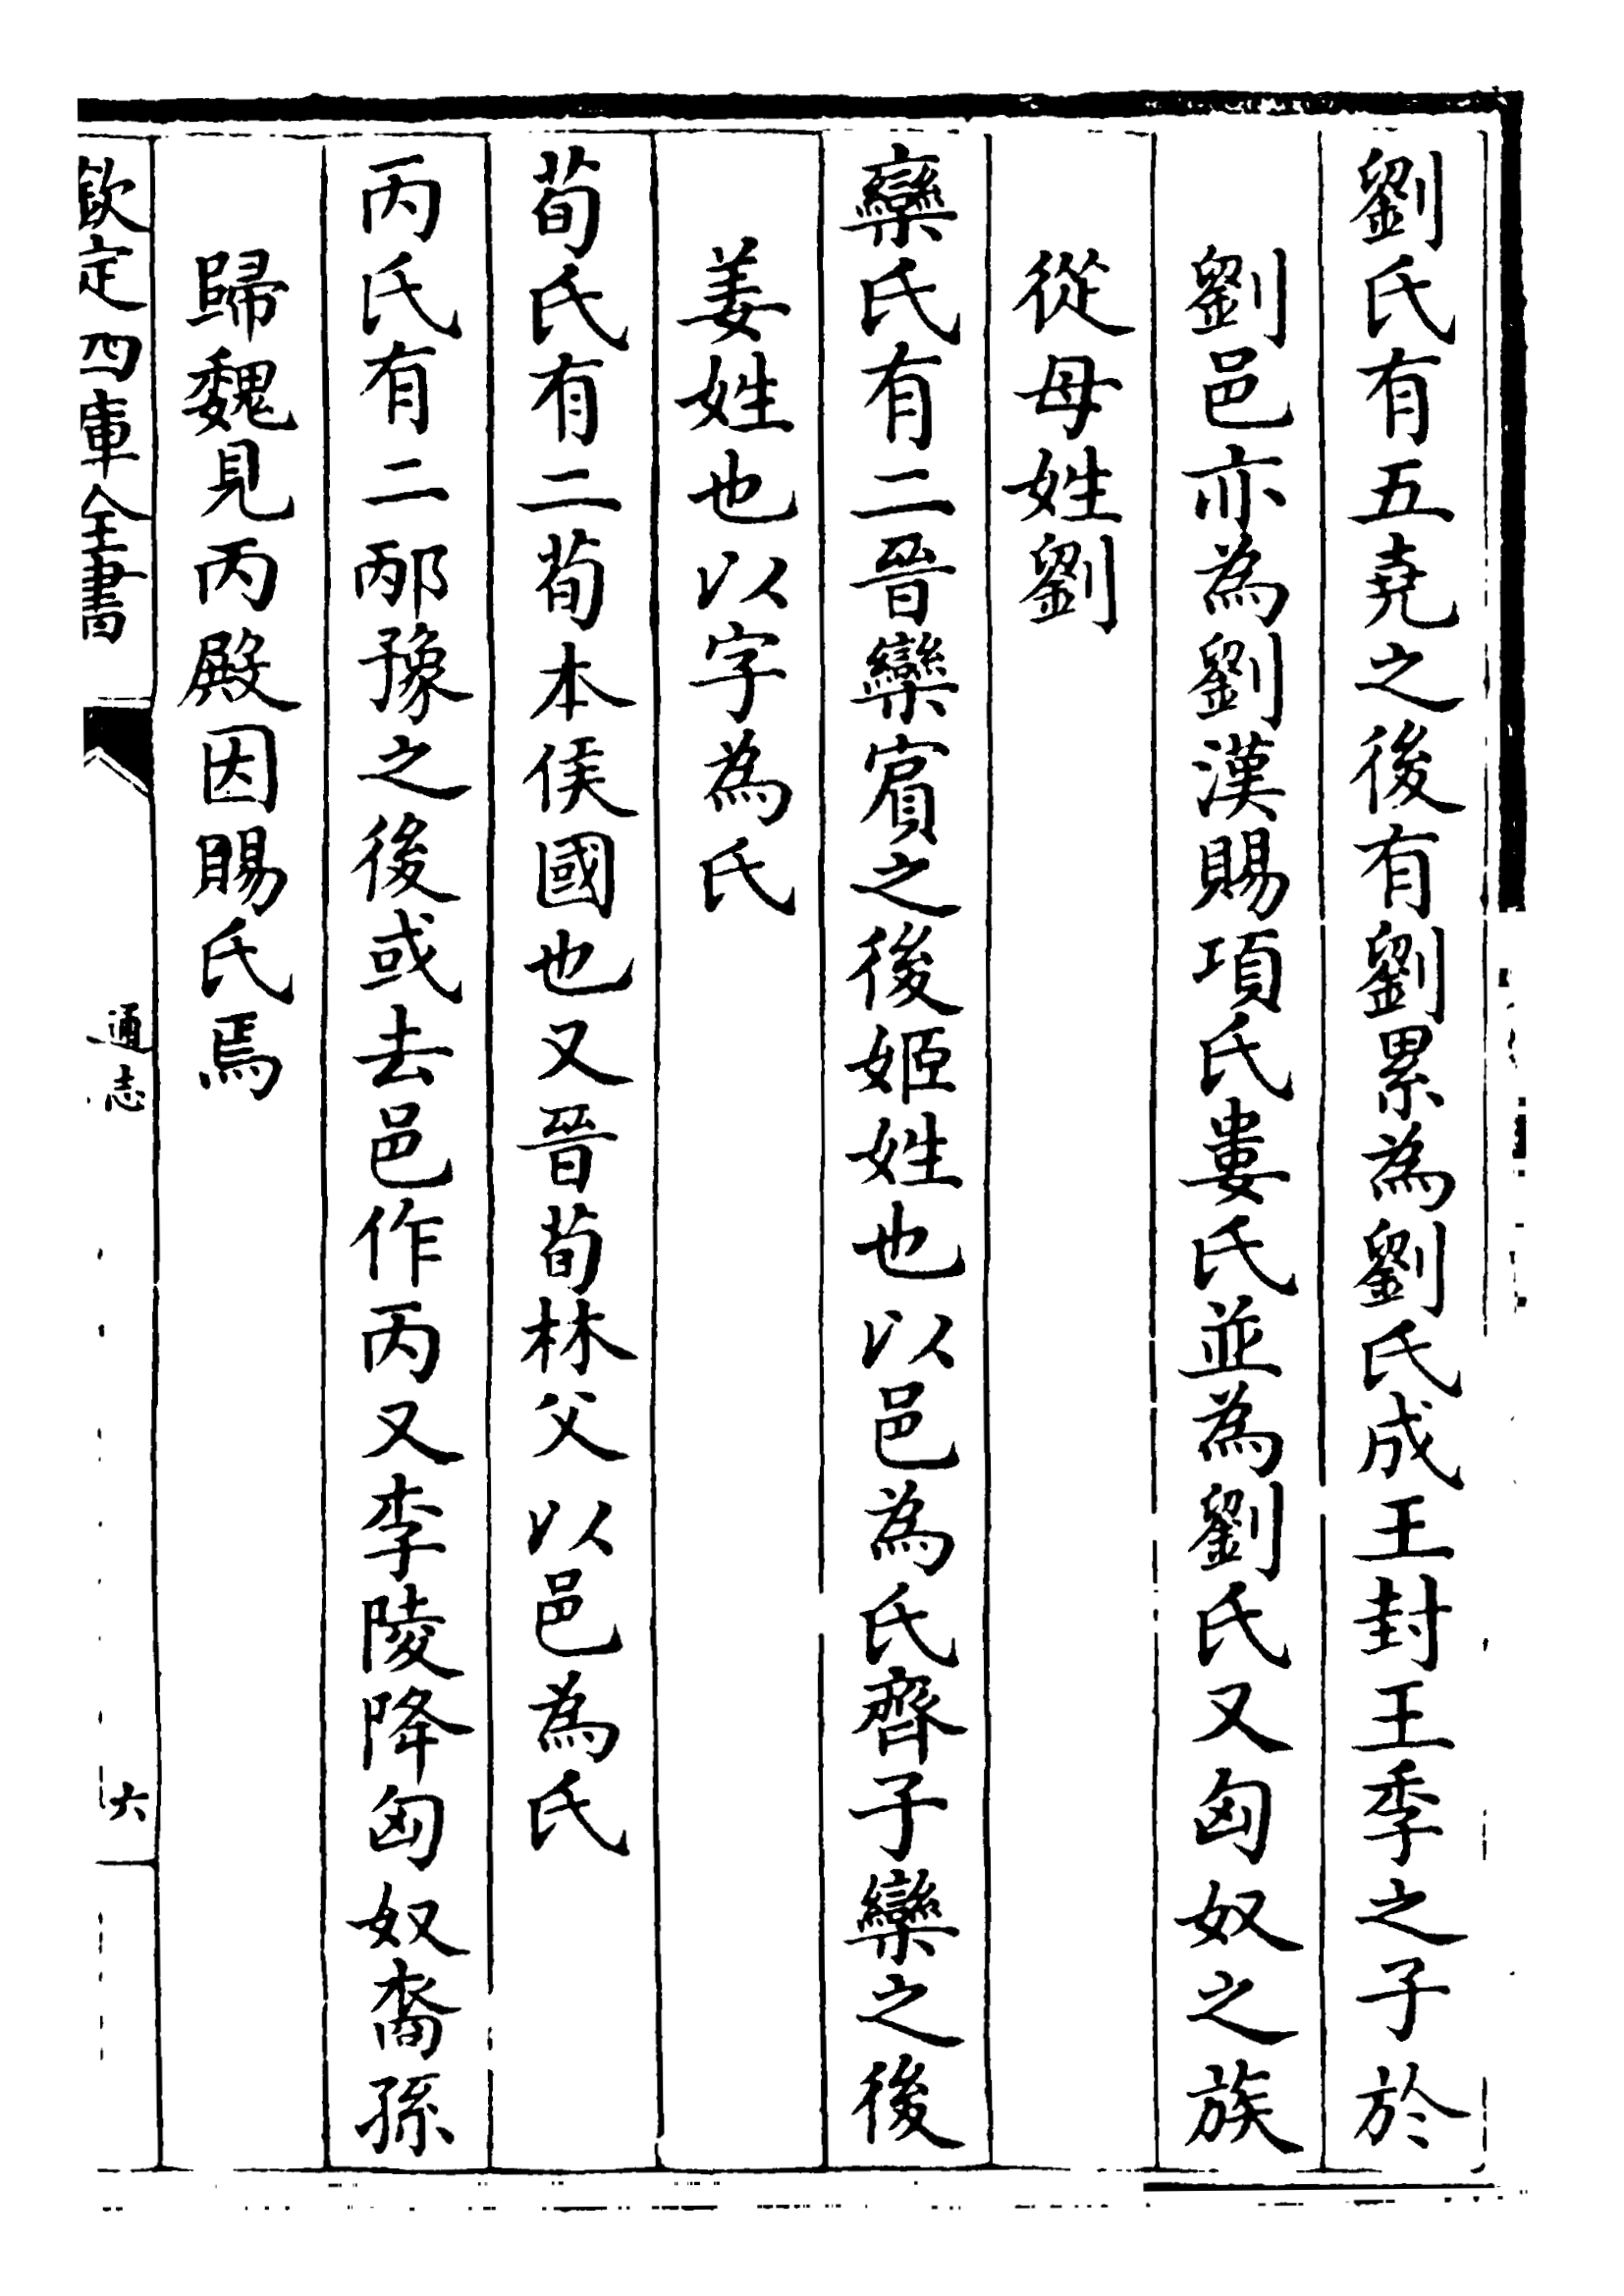 劉氏有五堯之後有劉累為劉氏成王封王季之子於
劉邑亦為劉漢賜項氏婁氏並為劉氏又匈奴之族
從母姓劉
欒氏有二晉欒賔之後姬姓也以邑為氏齊子欒之後
姜姓也以字為氏
荀氏有二荀本侯國也又晉荀林父以邑為氏
丙氏有二邴豫之後或去邑作丙又李陵降匈奴裔孫
歸魏見丙殿因賜氏焉
欽定四庫全書
通志
六